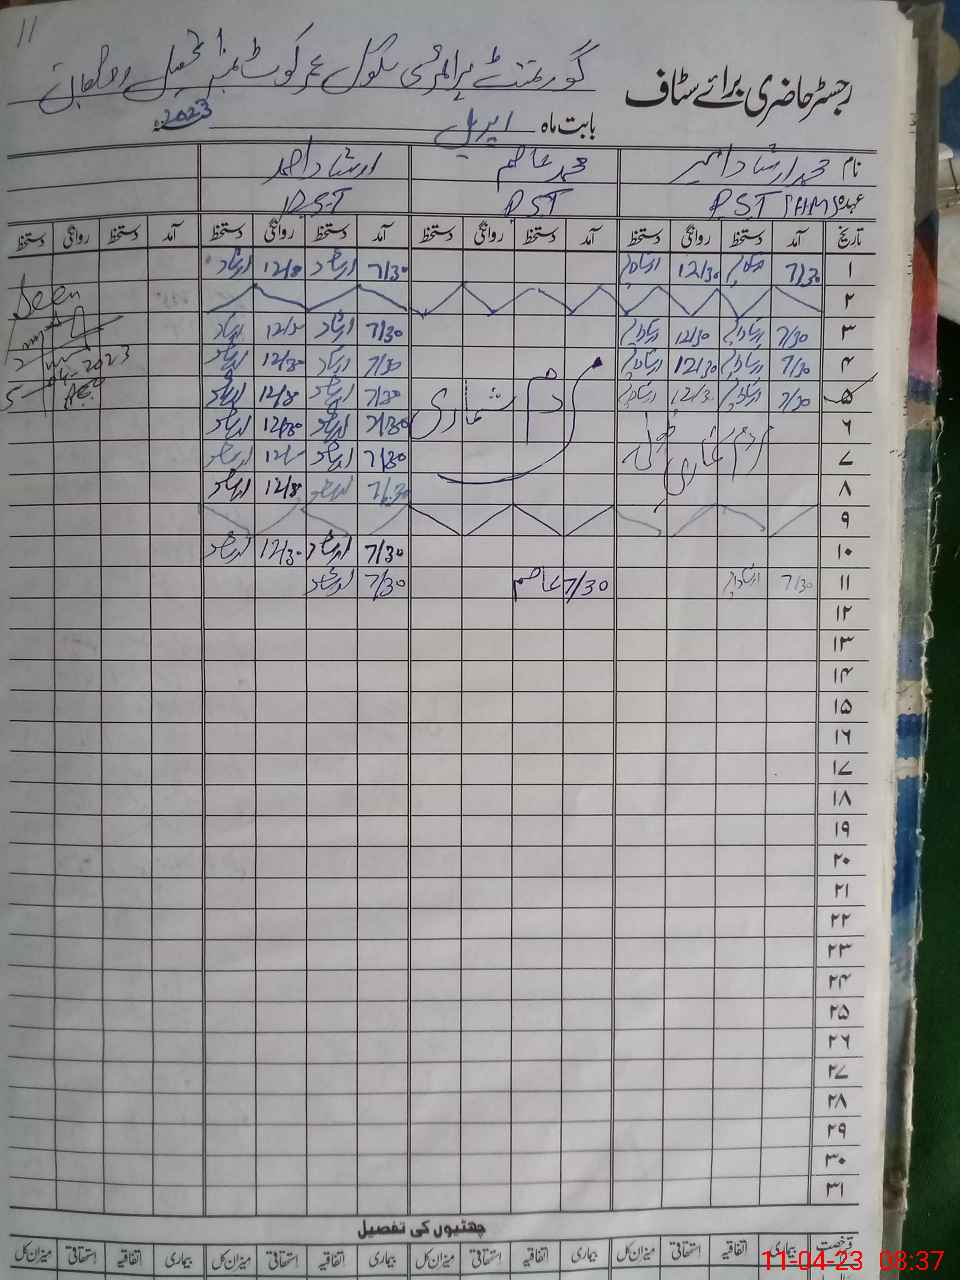 11
رجسٹر حاضری برائے سٹاف
گورنمنٹ پرائمری سکول عمر کوٹ نمبر تحصیل روجھان
بابت ماہ اپریل 2023ء
نام محمد ارشاد محمد عاصم ارشاد احمد
عہدہ PST PST P.S.T
تاریخ آمد دستخط روانگی دستخط آمد دستخط روانگی دستخط آمد دستخط روانگی دستخط آمد دستخط روانگی دستخط
۱ 7/30 12/30 7/30 ارشاد 12/30 ارشاد
۲ Seen
۳ 7/30 12/30 7/30 ارشاد 12/30 ارشاد
۴ 7/30 12/30 7/30 ارشاد 12/30 ارشاد
۵ 7/30 12/30 مردم شماری 7/30 ارشاد 12/30 ارشاد 5-04-2023
۶ مردم شماری ڈیوٹی 7/30 ارشاد 12/30 ارشاد
۷ 7/30 ارشاد ارشاد
۸ 7/30 ارشاد 12/30 ارشاد
۹
۱۰ 7/30 ارشاد 12/30 ارشاد
۱۱ 7/30 7/30 عاصم 7/30 ارشاد
۱۲
۱۳
۱۴
۱۵
۱۶
۱۷
۱۸
۱۹
۲۰
۲۱
۲۲
۲۳
۲۴
۲۵
۲۶
۲۷
۲۸
۲۹
۳۰
۳۱
چھٹیوں کی تفصیل
رخصت بیماری اتفاقیہ استحقاقی میزان کل بیماری اتفاقیہ استحقاقی میزان کل بیماری اتفاقیہ استحقاقی میزان کل بیماری اتفاقیہ استحقاقی میزان کل
11-04-23 08:37